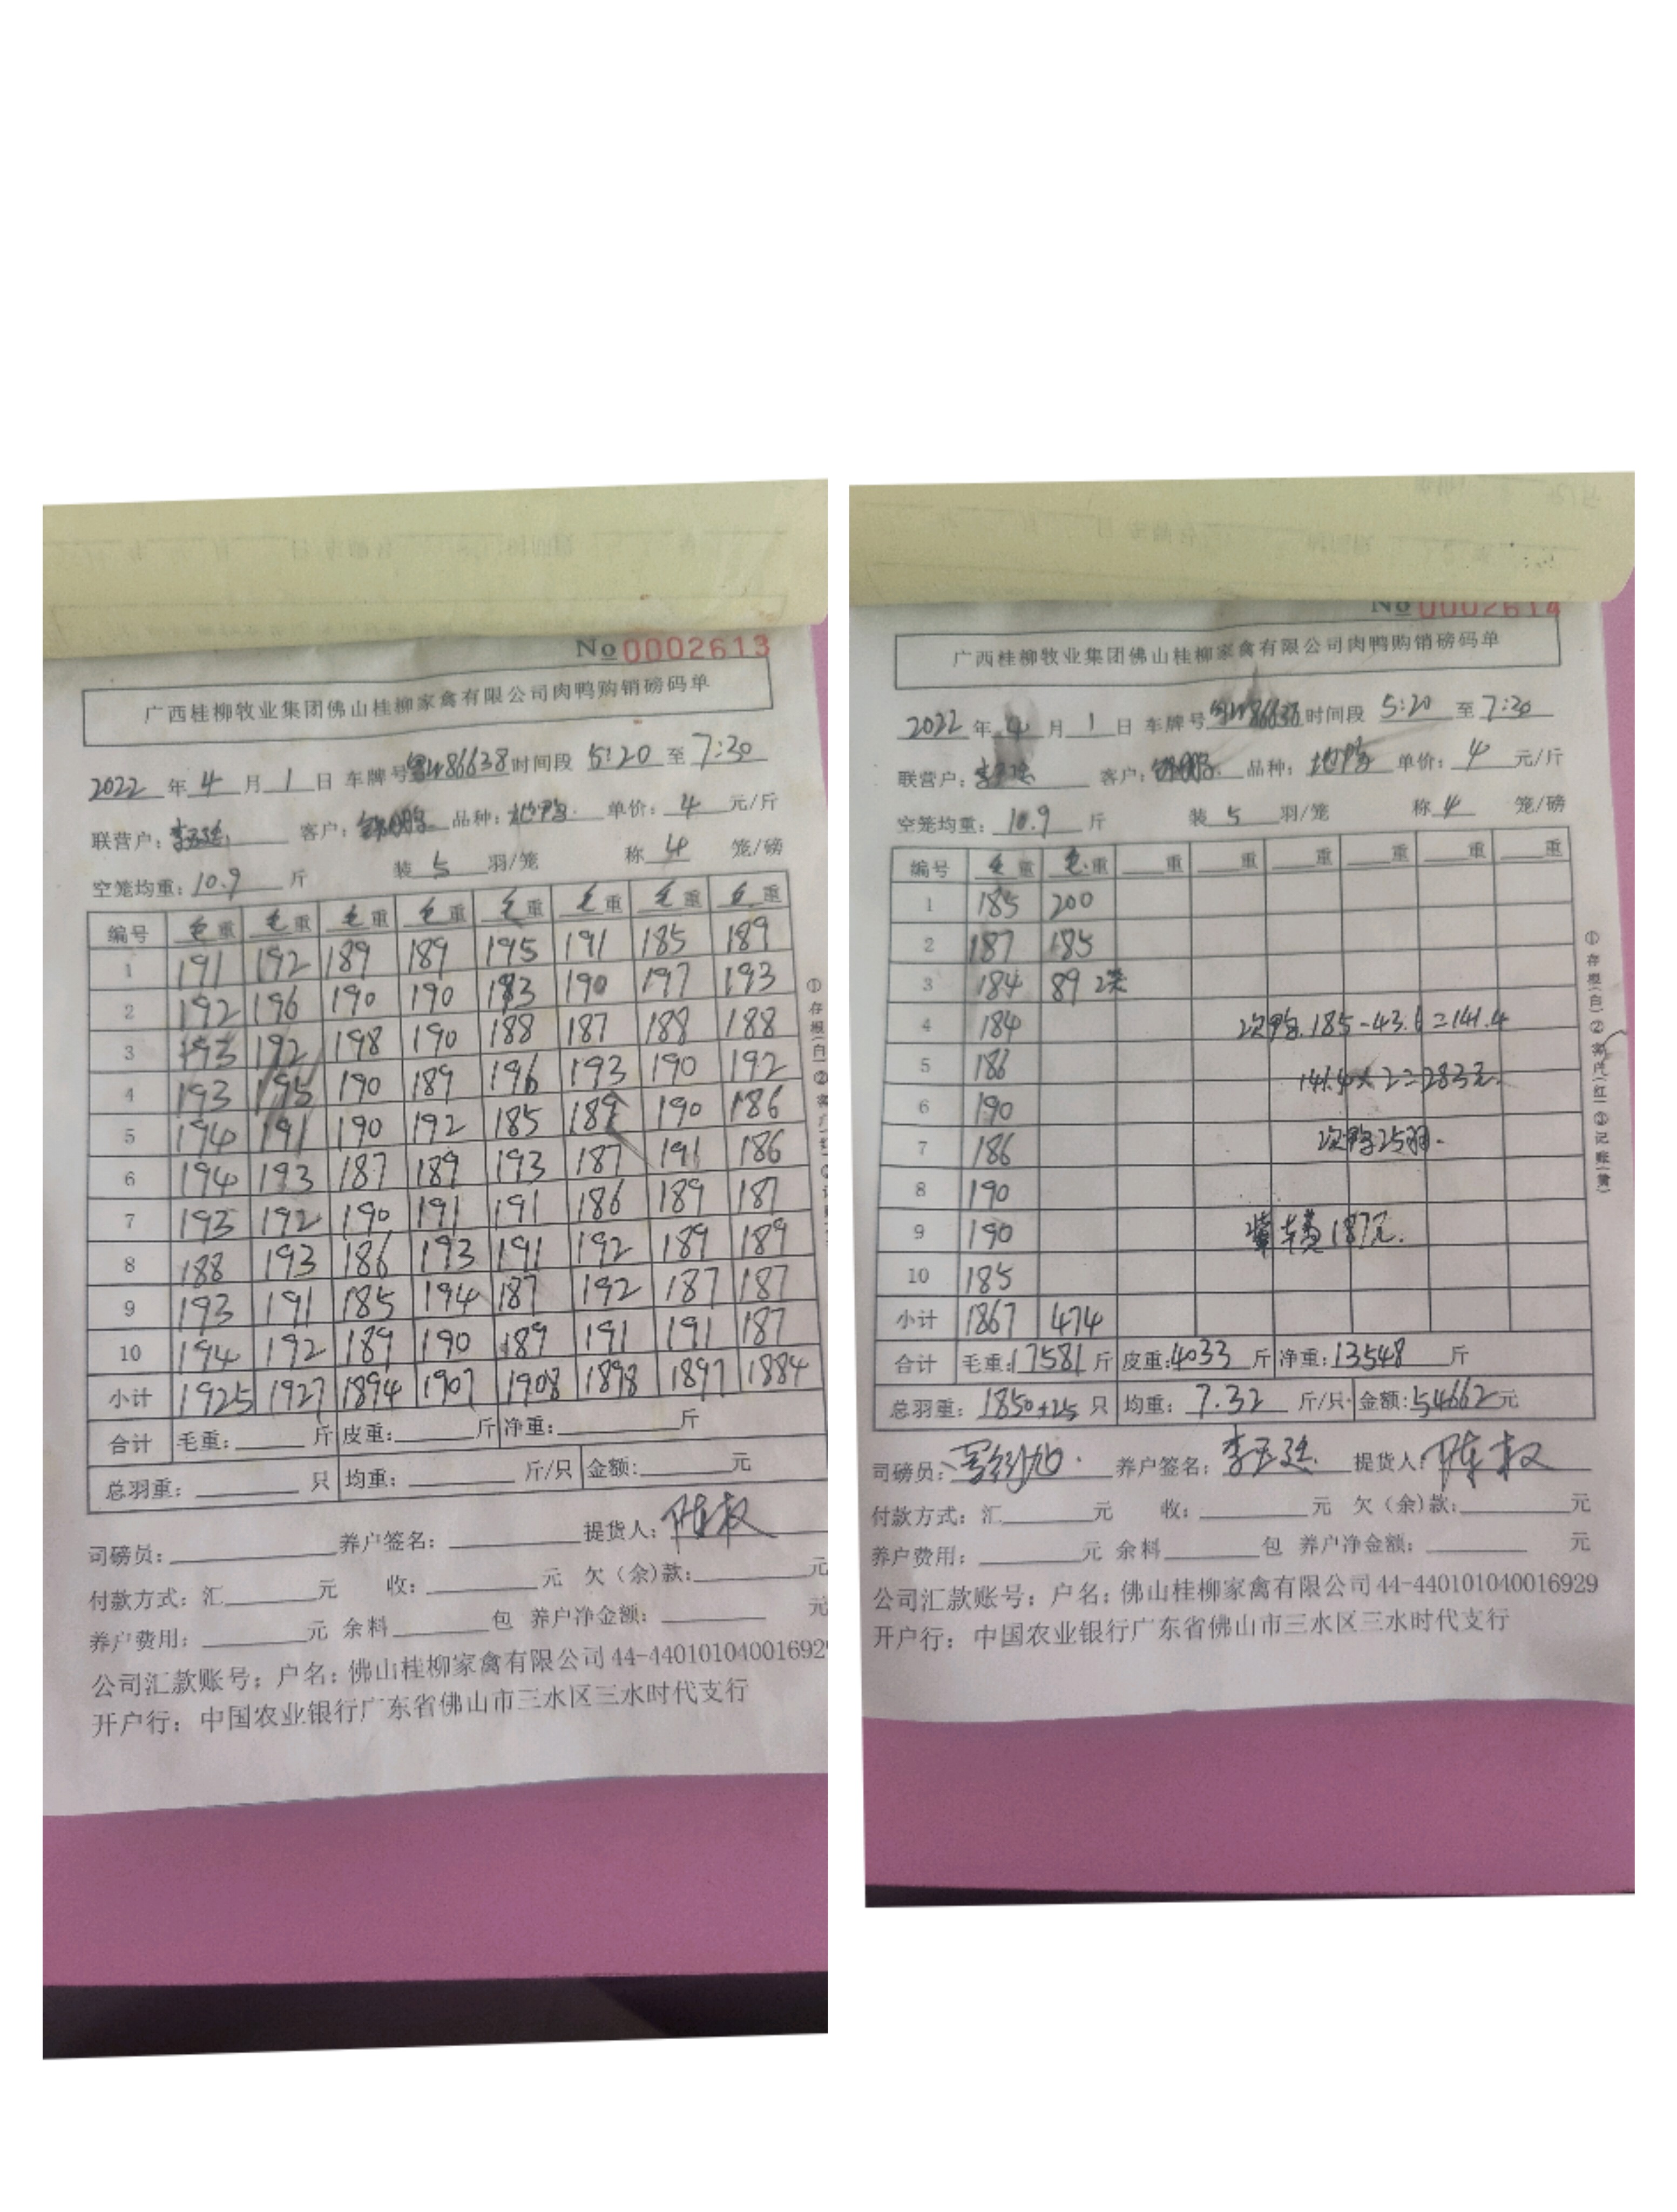 No 0002613
广西桂柳牧业集团佛山桂柳家禽有限公司肉鸭购销磅码单
2022 年 4 月 1 日 车牌号 86638 时间段 5:20 至 7:30
联营户: 客户: 品种: 地鸭 单价: 4 元/斤
空笼均重: 10.9 斤 装 5 羽/笼 称 4 笼/磅
编号 毛重 毛重 毛重 毛重 毛重 毛重 毛重 毛重
1 191 192 189 189 195 191 185 189
2 192 196 190 190 183 190 197 193
3 193 192 198 190 188 187 188 188
4 193 195 190 189 196 193 190 192
5 194 191 190 192 185 189 190 186
6 194 193 187 189 193 187 191 186
7 193 192 190 191 191 186 189 187
8 188 193 186 193 191 192 189 189
9 193 191 185 194 187 192 187 187
10 194 192 189 190 189 191 191 187
小计 1925 1927 1894 1907 1908 1898 1897 1884
合计 毛重: 斤 皮重: 斤 净重: 斤
总羽重: 只 均重: 斤/只 金额: 元
司磅员: 养户签名: 提货人: 陈权
付款方式: 汇 元 收: 元 欠（余）款: 元
养户费用: 元 余料 包 养户净金额: 元
公司汇款账号: 户名: 佛山桂柳家禽有限公司 44-44010104001692
开户行: 中国农业银行广东省佛山市三水区三水时代支行
①存根(白)②
No 0002614
广西桂柳牧业集团佛山桂柳家禽有限公司肉鸭购销磅码单
2022 年 4 月 1 日 车牌号 86638 时间段 5:20 至 7:30
联营户: 客户: 品种: 地鸭 单价: 4 元/斤
空笼均重: 10.9 斤 装 5 羽/笼 称 4 笼/磅
编号 毛重 毛重 重 重 重 重 重 重
1 185 200
2 187 185
3 184 89 2笼
4 184 次鸭 185-43.6=141.4
5 186 141.4×2=283元
6 190
7 186 次鸭25羽.
8 190
9 190 车费187元.
10 185
小计 1867 474
合计 毛重: 17581 斤 皮重: 4033 斤 净重: 13548 斤
总羽重: 1850+25 只 均重: 7.32 斤/只 金额: 54662元
司磅员: 养户签名: 提货人: 陈权
付款方式: 汇 元 收: 元 欠（余）款: 元
养户费用: 元 余料 包 养户净金额: 元
公司汇款账号: 户名: 佛山桂柳家禽有限公司 44-440101040016929
开户行: 中国农业银行广东省佛山市三水区三水时代支行
①存根(白)②客户(红)③记账(黄)